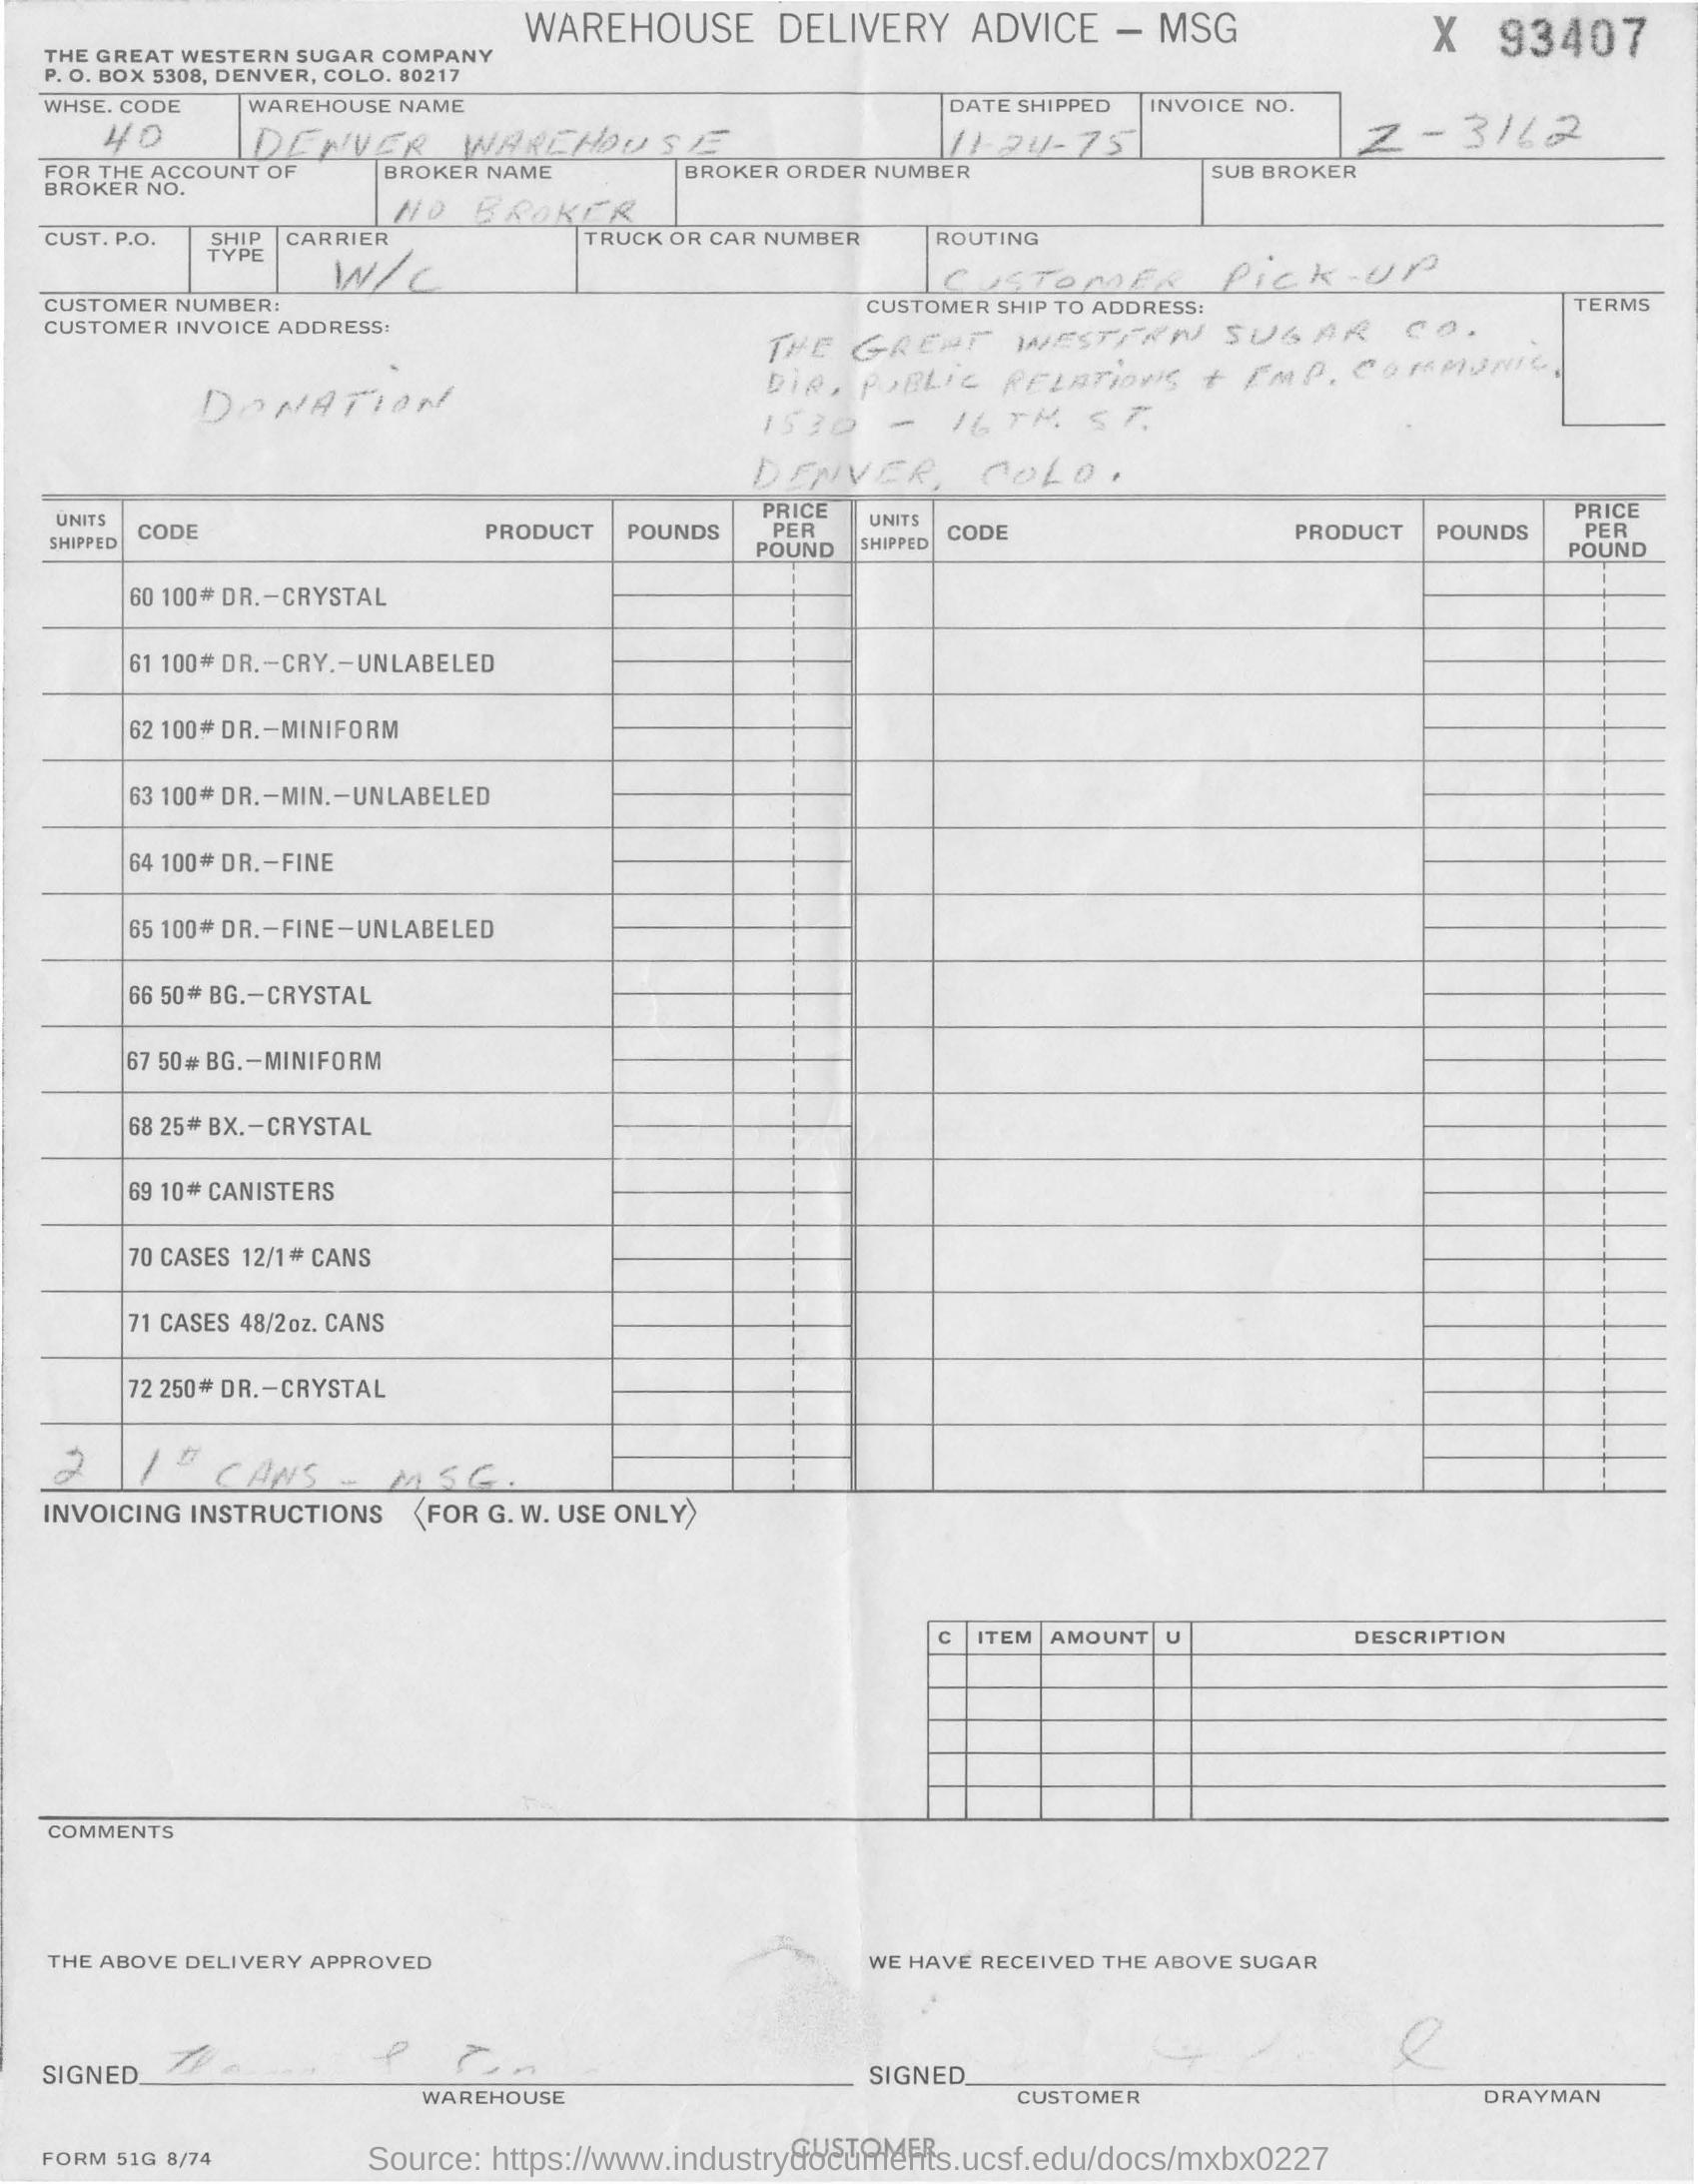 WAREHOUSE DELIVERY ADVICE – MSG
X 93407
THE GREAT WESTERN SUGAR COMPANY
P. O. BOX 5308, DENVER, COLO. 80217
WHSE. CODE WAREHOUSE NAME DATE SHIPPED INVOICE NO.
40 DENVER WAREHOUSE 11-24-75 Z-3162
FOR THE ACCOUNT OF BROKER NAME BROKER ORDER NUMBER SUB BROKER
BROKER NO.
NO BROKER
CUST. P.O. SHIP CARRIER TRUCK OR CAR NUMBER ROUTING
TYPE
W/C CUSTOMER PICK-UP
CUSTOMER NUMBER: CUSTOMER SHIP TO ADDRESS: TERMS
CUSTOMER INVOICE ADDRESS:
THE GREAT WESTERN SUGAR CO.
DIR. PUBLIC RELATIONS + EMP. COMMUNIC.
DONATION
1530 – 16TH. ST.
DENVER, COLO.
UNITS SHIPPED CODE PRODUCT POUNDS PRICE PER POUND UNITS SHIPPED CODE PRODUCT POUNDS PRICE PER POUND
60 100# DR.–CRYSTAL
61 100# DR.–CRY.–UNLABELED
62 100# DR.–MINIFORM
63 100# DR.–MIN.–UNLABELED
64 100# DR.–FINE
65 100# DR.–FINE–UNLABELED
66 50# BG.–CRYSTAL
67 50# BG.–MINIFORM
68 25# BX.–CRYSTAL
69 10# CANISTERS
70 CASES 12/1# CANS
71 CASES 48/2oz. CANS
72 250# DR.–CRYSTAL
2 1# CANS – MSG.
INVOICING INSTRUCTIONS 〈FOR G. W. USE ONLY〉
C ITEM AMOUNT U DESCRIPTION
COMMENTS
THE ABOVE DELIVERY APPROVED WE HAVE RECEIVED THE ABOVE SUGAR
SIGNED SIGNED
WAREHOUSE CUSTOMER DRAYMAN
CUSTOMER
FORM 51G 8/74
Source: https://www.industrydocuments.ucsf.edu/docs/mxbx0227